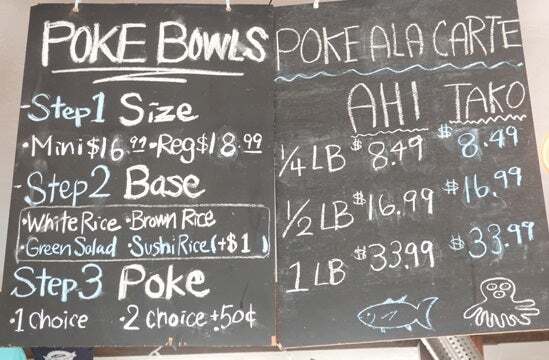 POKE BOWLS
-Step1 Size
•Mini $16.99 •Reg $18.99
-Step2 Base
•White Rice •Brown Rice
•Green Salad •Sushi Rice (+$1)
Step3 Poke
•1 choice •2 choice +.50¢
POKE ALA CARTE
AHI TAKO
1/4 LB $8.49 $8.49
1/2 LB $16.99 $16.99
1 LB $33.99 $33.99